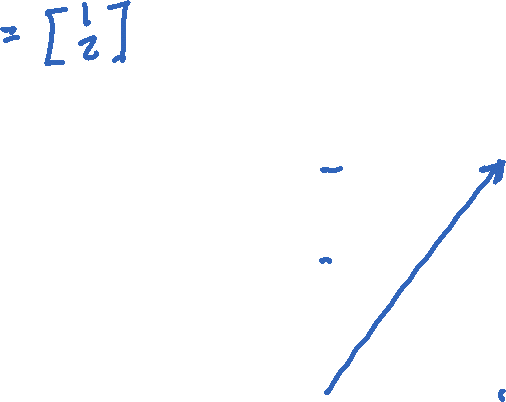 = [1
2]